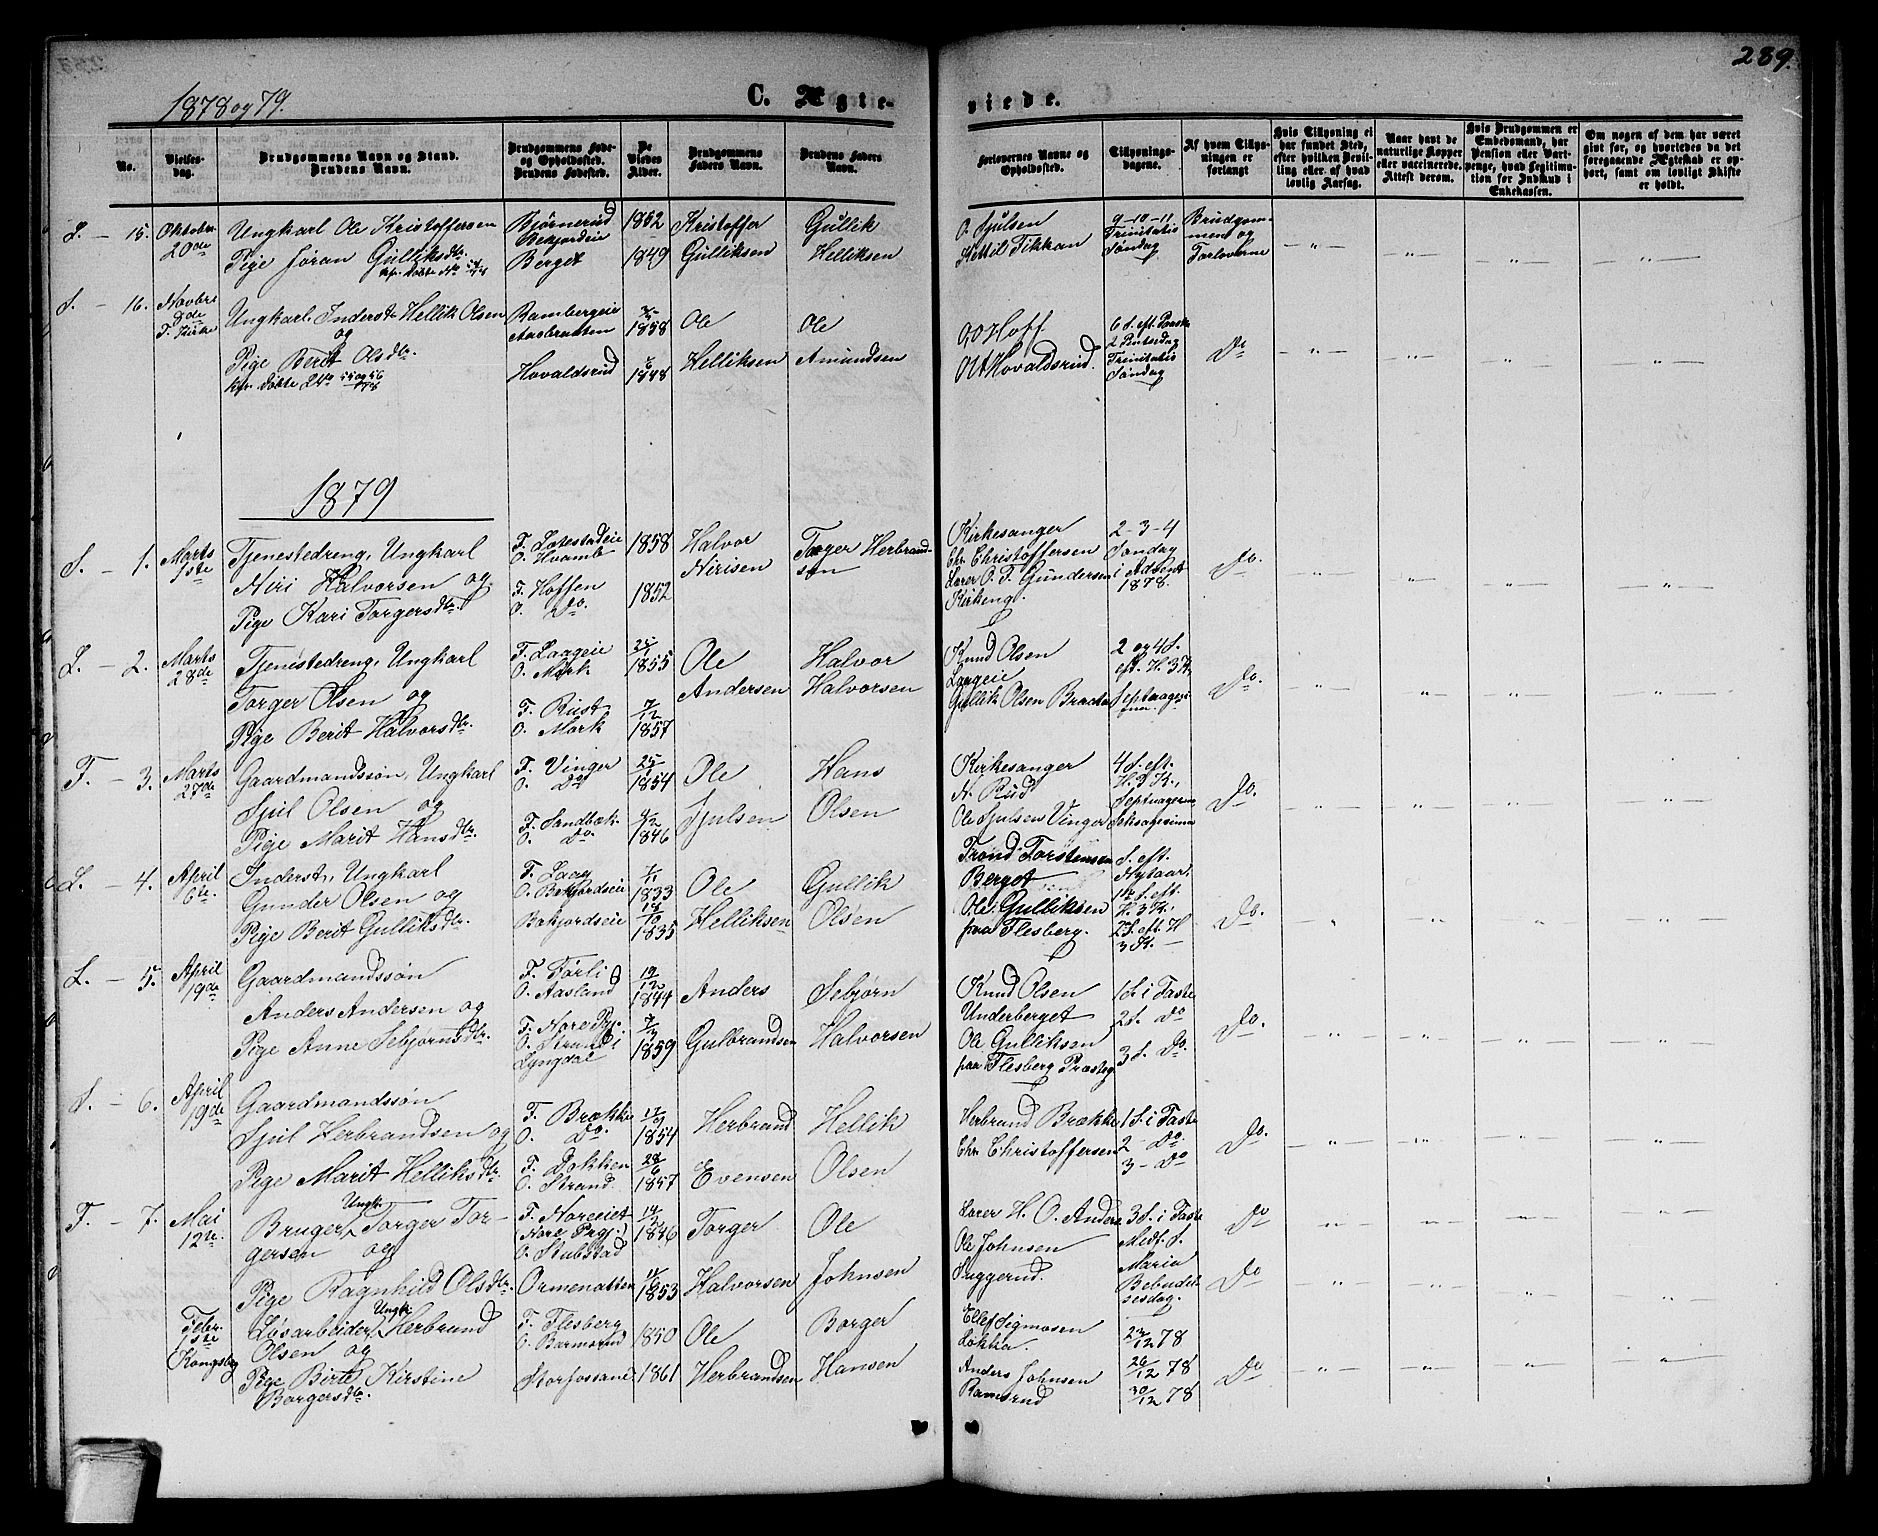 289.
1878 og 79.
C. Ægte-
viede.
No.
Vielses-
dag.
Brudgommens Navn og Stand.
Brudens Navn.
Brudgommens Føde-
og Opholdssted.
Brudens Fødested.
De
Viedes
Alder.
Brudgommens
Faders Navn.
Brudens Faders
Navn.
Forlovernes Navne og
Opholdssted.
Tillysnings-
dagene.
Af hvem Tillys-
ningen er
forlangt
Hvis Tillysning ei
har fundet Sted,
efter hvilken Bevil-
ling eller af hvad
lovlig Aarsag.
Naar havt de
naturlige Kopper
eller vaccinerede.
Attest derom.
Hvis Brudgommen er
Embedsmand, har
Pension eller Vart-
penge, hvad Legitima-
tion for Indskud i
Enkekassen.
Om nogen af dem har været
gift før, og hvorledes da det
foregaaende Ægteskab er op-
hørt, samt om lovligt Skifte
er holdt.
L. - 15. Oktober
20de
Ungkarl Ole Kristoffersen
Pige Jøran Gulliksdtr.
Bjørnerud
Bekjordeie
Berget
1852
1849
Kristoffer
Gulliksen
Gullik
Helliksen
O. Sjulsen
Kettil Tikkan
9-10-11
Trinitatis
Søndag
Brudgom-
men og
Forloverne
S. - 16. Novbr
8de
F. Kirke
Ungkarl, Inderst Hellik Olsen
og
Pige Berit Olsdtr.
Bambergeie
Aasbraaten
Hovaldsrud
1858
1848
Ole
Helliksen
Ole
Amundsen
O, O Hoff.
O A Hovaldsrud.
6 S. eft. Paaske
2 Pintsedag
Trinitatis
Søndag
Do
1879
S. - 1. Marts
1ste
Tjenestedreng, Ungkarl
Niri Halvorsen og
Pige Kari Torgersdtr.
O. Hvamb
F. Hoffen
O. Do.
1858
1852
Halvor
Nirisen
Torger Herbrand-
sen
Kirkesanger
Chr. Christoffersen
Lærer O. T. Gundersen
Kirkeng.
2-3-4
Søndag
i Advent
1878.
Do.
L. - 2. Marts
28de
Tjenestedreng, Ungkarl
Torger Olsen og
Pige Berit Halvorsdtr.
F. Laageie
O. Mørk
F. Rust
O. Mørk
25/1
1855
7/12
1857
Ole
Andersen
Halvor
Halvorsen
Knud Olsen
Laageie
Gullik Olsen Braata
2 og 4 S.
eft. H. 3 K,
Septuagesi
ma
Do.
F. - 3. Marts
27de
Gaardmandssøn, Ungkarl
Sjul Olsen og
Pige Marit Hansdtr.
F. Vinger
O. Do
F. Sandbæk
O. Do.
1854
1846
Ole
Sjulsen
Hans
Olsen
Kirkesanger
N. Rud
Ole Sjulsen Vinger
4 S. eft.
H. 3 K.,
Septuagesima
Seksagesima
Do.
L. - 4. April
6te.
Inderst, Ungkarl
Gunder Olsen og
Pige Berit Gulliksdtr.
F. Laag
O. Bekjordseie
Bekjordseie
1833
18/10
1835
Ole
Helliksen
Gullik
Olsen
Trond Torstensen
Berget
Ole Gulliksen
paa Flesberg.
S. eft.
Nytaar,
1ste S. eft.
H. 3 K.
2 S. eft. H
3 K. -
Do.
L. - 5. April
19de
Gaardmandssøn
Anders Andersen og
Pige Anne Sebjørnsdtr.
F. Førli
O. Aasland
F. Nore Pgj.
O. Strand i
Lyngdal
19/12
1844
1859
Anders
Gulbrandsen
Sebjørn
Halvorsen
Knud Olsen
Underberget
Ole Gulliksen
paa Flesberg Præsteg
1 S. i Faste
2 S. Do
3 S. Do
Do.
S. - 6. April
19de
Gaardmandssøn
Sjul Herbrandsen og
Pige Marit Helliksdtr.
F. Brække
O. Do.
F. Dokken
O. Strand.
1854
28/6
1857
Herbrand
Evensen
Hellik
Olsen
Herbrand Brække
Chr. Christoffersen
1 S. i Faste
2 - Do.
3 - Do
Do.
F. - 7. Mai
12te.
Ungk.
Bruger, Torger Tor-
gersen og
Pige Ragnhild Olsdtr.
F. Noreeiet
(Nore Prgj.)
O. Stubstad
Ormenatten
1846
1853
Torger
Halvorsen
Ole
Johnsen
Lærer H. O. Anders
Ole Johnsen
Juggerud.
3 S. i Faste
Midf. S.
Maria
Bebudel-
sesdag.
Do
Do
Febr.
1ste
Kongsbg
Ungk.
Løsarbeider, Herbrand
Olsen og
Pige Birte Kirstine
Borgersdtr.
F. Flesberg
O. Barmerud
Storfossane
1850
1861
Ole
Herbrandsen
Borger
Hansen
Ellef Sigmosen
Løkka.
Anders Johnsen
Ramsrud
22/12 78
26/12 78
30/12 78
Do